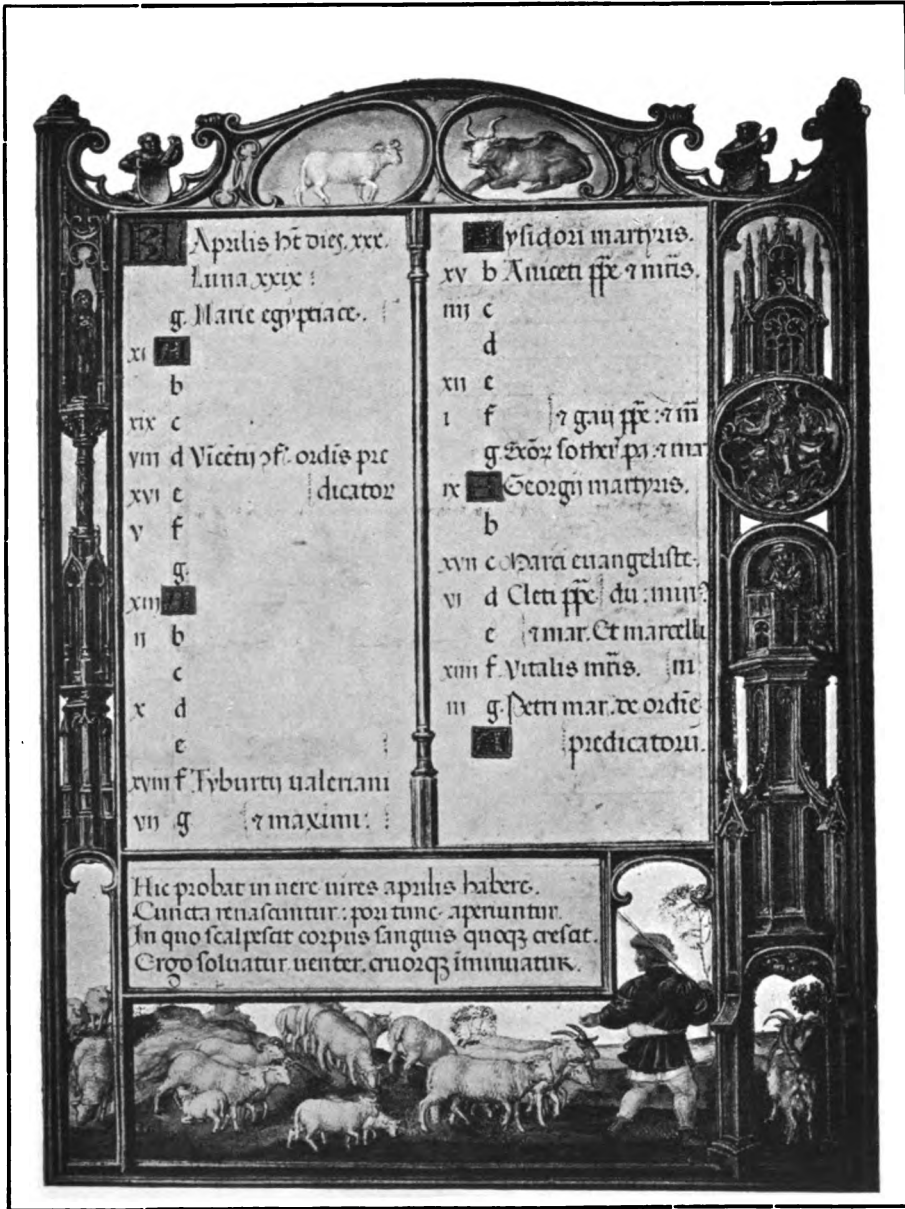 KL Aprilis ht dies. xxx.
Luna xxix :
g. Marie egyptiace.
xi A
b
xix c
viii d Vicetij ꝯf. ordis pre
xvi e dicator
v f
g.
xiii A
ii b
c
x d
e
xviii f Tyburtij ualeriani
vii g ⁊ maximi :
A ysidori martyris.
xv b Aniceti ppe ⁊ mris.
iiii c
d
xii e
i f ⁊ gaij ppe : ⁊ m
g. sother pa ⁊ mar
ix A Georgij martyris.
b
xvii c Marci euangeliste.
vi d Cleti ppe
e ⁊ mar. Et marcelli
xiiii f. Vitalis mris. ni
iii g. Petri mar. de ordie
A predicatorū.
Hic probat in uere uires aprilis habere.
Cuncta renascuntur : pori tunc aperiuntur.
In quo scalpescit corpus sanguis quoqꝫ crescit.
Ergo soluatur uenter. cruorqꝫ iminuatur.